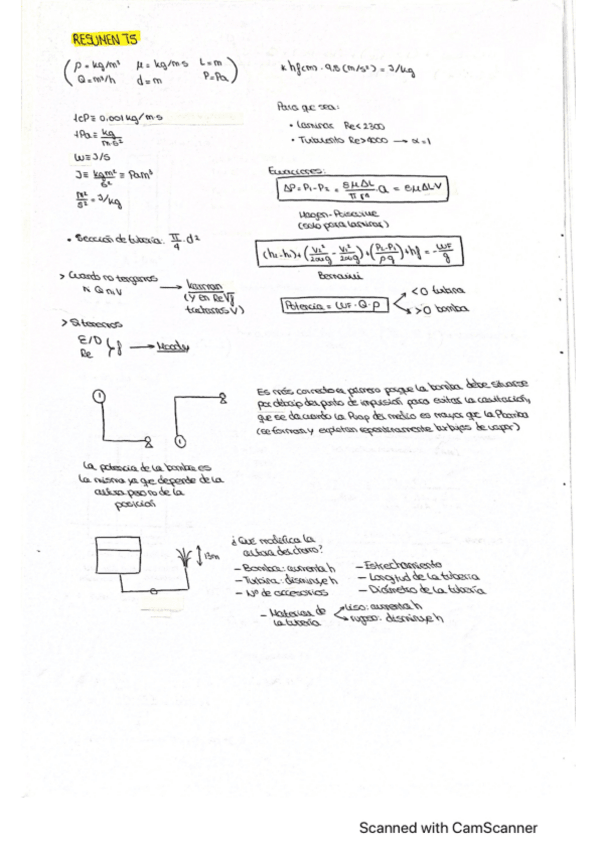 RESUMEN T5
ρ = kg/m³ μ = kg/m·s L = m
Q = m³/h d = m P = Pa
* hf(m) · 9,8 (m/s²) = J/kg
1cP ≡ 0.001 kg/m·s
1Pa ≡ kg/m·s²
W ≡ J/s
J ≡ kgm²/s² ≡ Pam³
m²/s² = J/kg
Para que sea:
• Laminar Re<2300
• Turbulento Re>4000 → α=1
Ecuaciones:
ΔP = P1 - P2 = 8μΔL/π r⁴ · Q = 8μΔLV
Hagen-Poiseuille
(solo para laminar)
• Sección de tubería: π/4 · d²
(h2-h1) + (V2²/2αg - V1²/2αg) + (P2-P1/ρg) + hf = -WF/g
Bernoulli
> Cuando no tengamos
ni Q ni V → Karman
(y en Re√f
tachamos V)
Potencia = WF · Q · ρ
<0 turbina
>0 bomba
> Si tenemos
E/D
Re } f → Moody
Es más correcto el primero porque la bomba debe situarse
por debajo del punto de impulsión para evitar la cavitación,
que se da cuando la Pvap del medio es mayor que la Pbomba
(se forman y explotan repentinamente burbujas de vapor)
La potencia de la bomba es
la misma ya que depende de la
altura pero no de la
posición
13m
¿Qué modifica la
altura del chorro?
- Bomba: aumenta h
- Turbina: disminuye h
- Nº de accesorios
- Estrechamiento
- Longitud de la tubería
- Diámetro de la tubería
- Material de
la tubería
liso: aumenta h
rugoso: disminuye h
Scanned with CamScanner